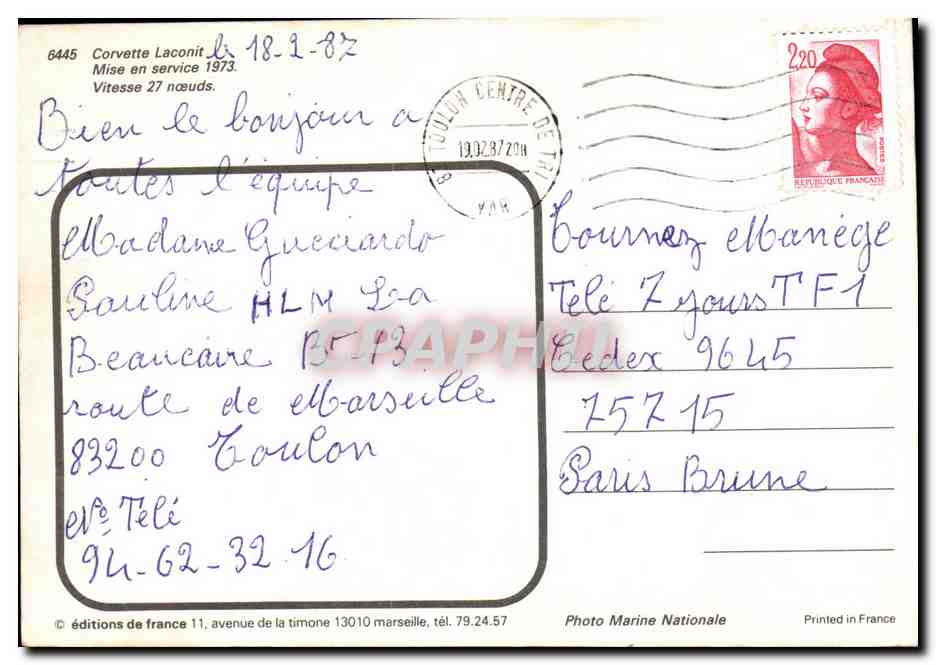 6445 Corvette Laconit le 18-2-87
Mise en service 1973.
Vitesse 27 nœuds.
Bien le bonjour a
toutes l'équipe
Madame Gucciardo
Pauline HLM La
Beaucaire B5-13
route de Marseille
83200 Toulon
N° Télé
94-62-32-16
TOULON CENTRE DE TRI
19.02.87 20H
VAR
2,20
POSTES
REPUBLIQUE FRANÇAISE
Tournez Manége
Télé 7 jours TF1
Cedex 9645
75715
Paris Brune
CPAPHIL
© éditions de france 11, avenue de la timone 13010 marseille, tél. 79.24.57
Photo Marine Nationale
Printed in France